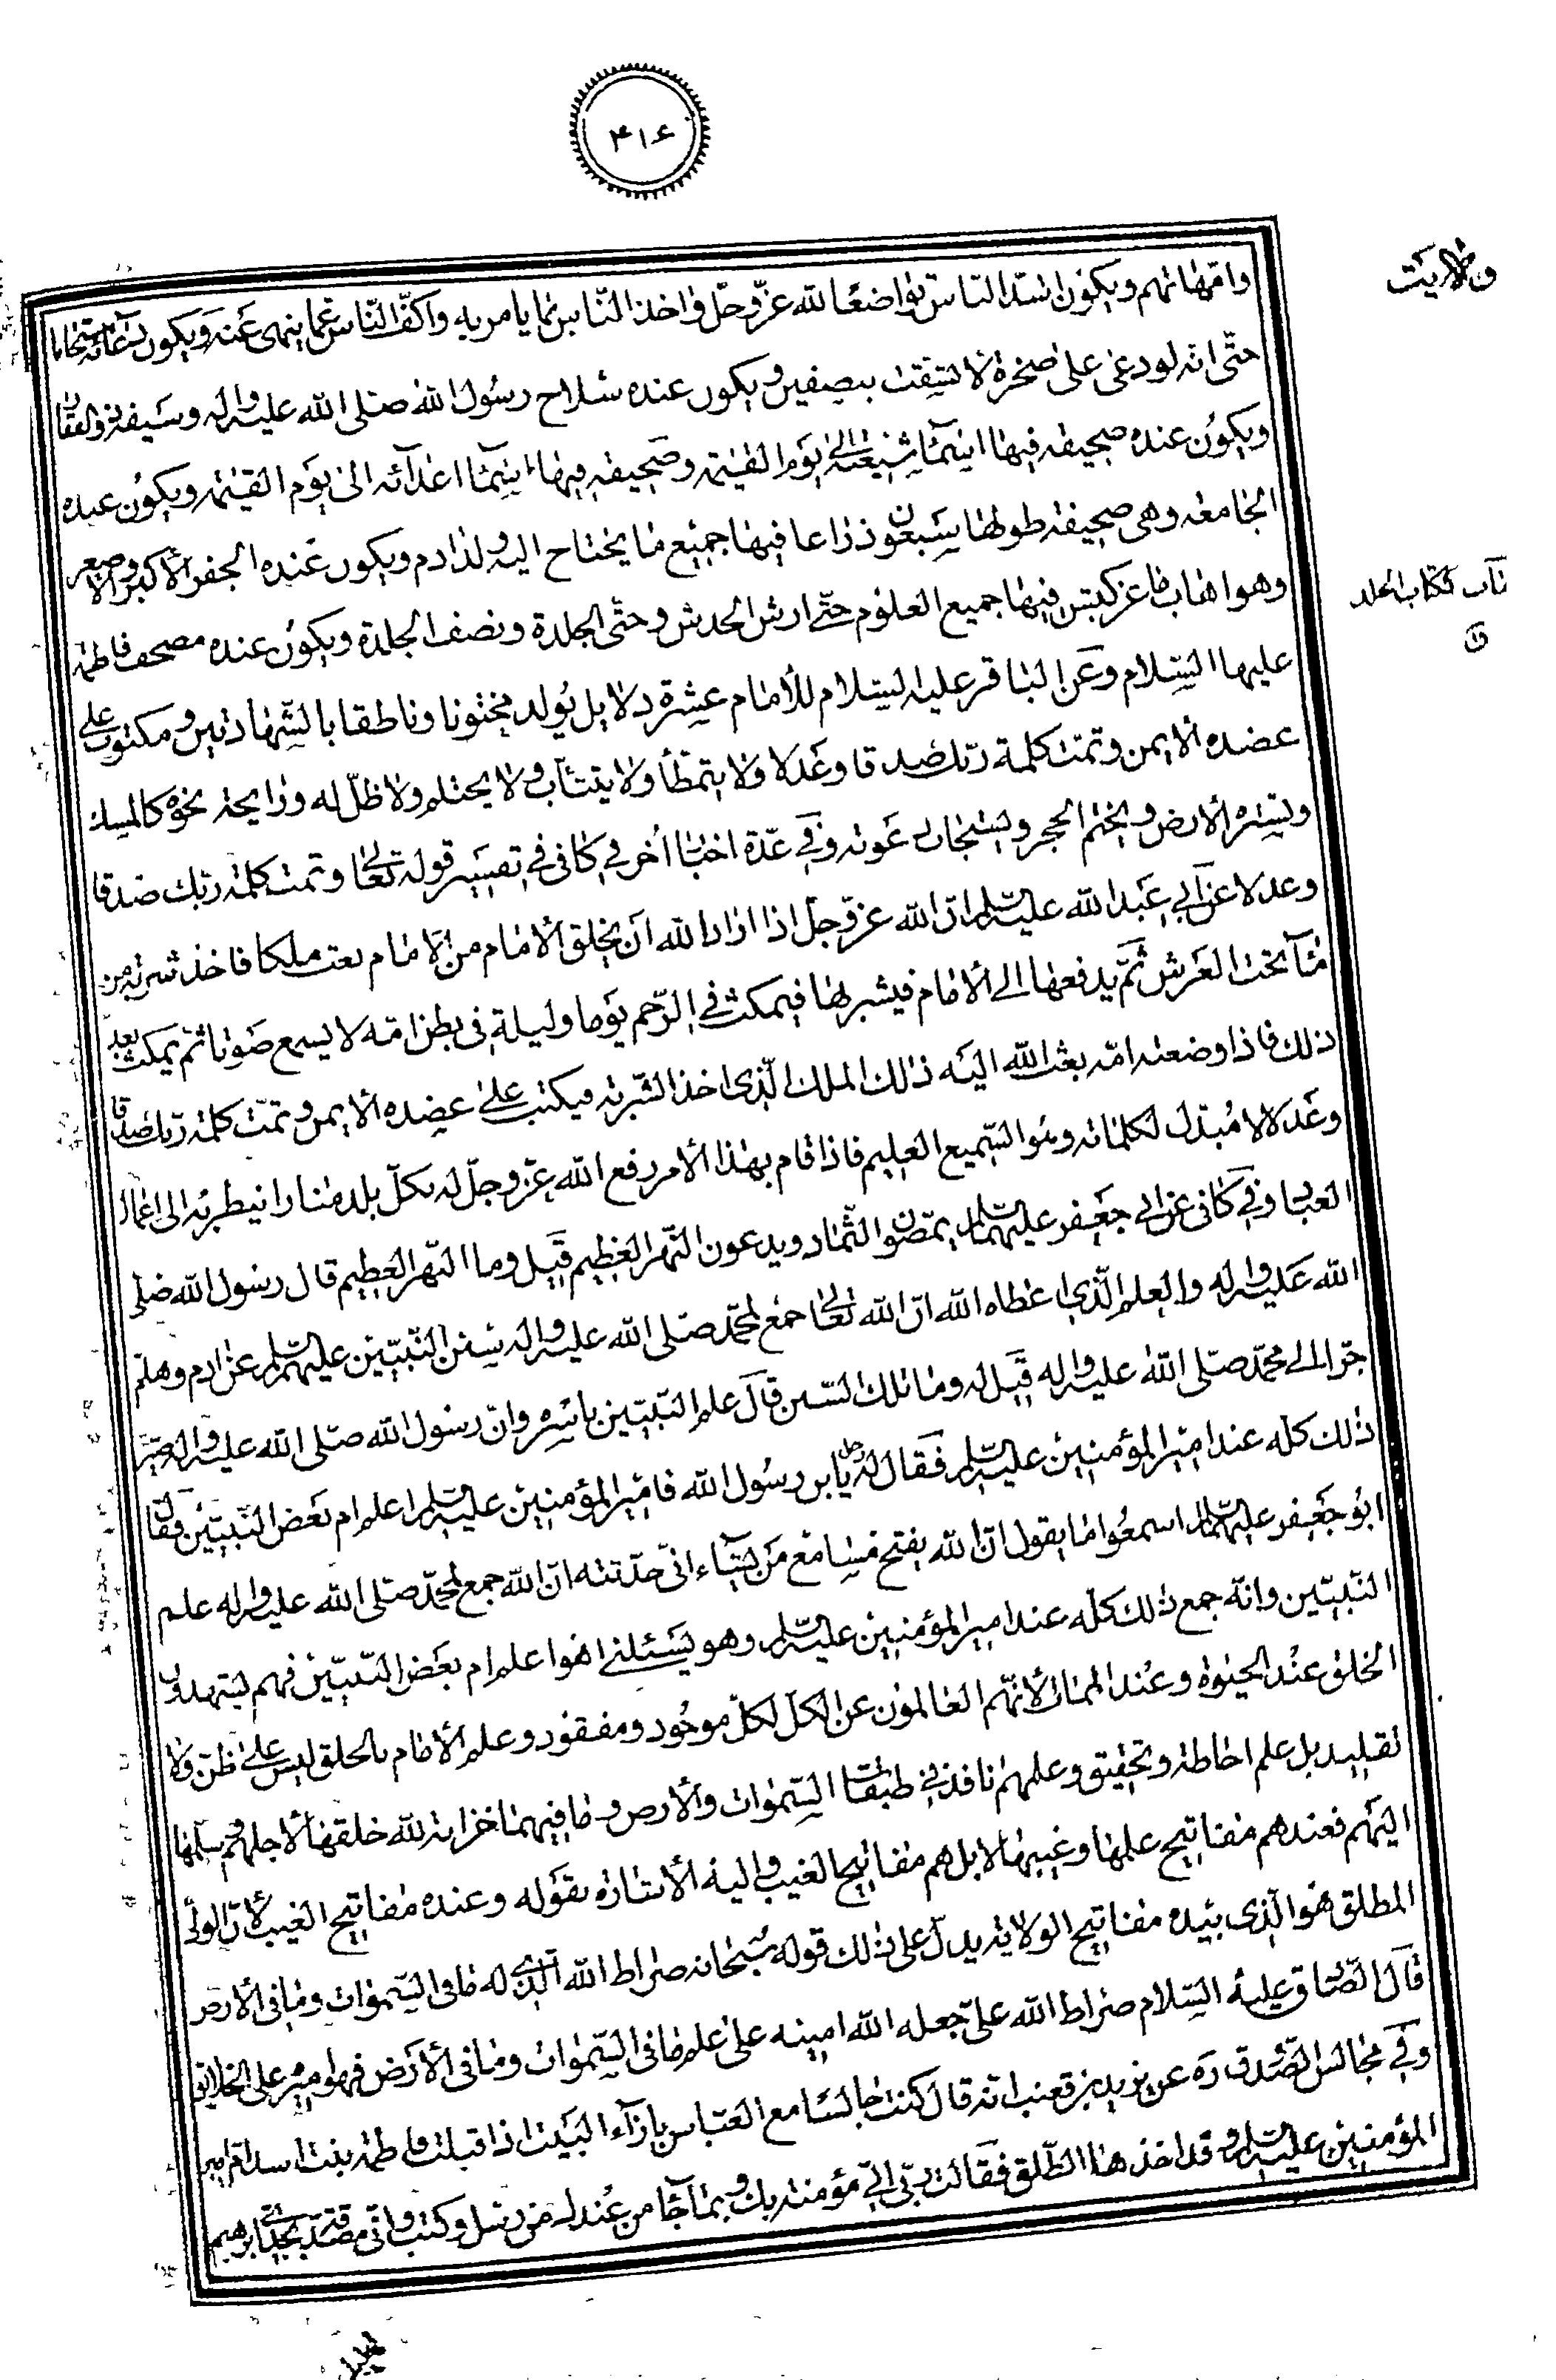 ۴۱۶
ولایت
وامّهاتهم ويكون اشدّ الناس تواضعًا لله عزّ وجلّ واخذ النّاس بما يامر به واكفّ النّاس عمّا ينهى عنه ويكون دعائه مستجابا
حتّى انّه لو دعى على صخرة لانشقت بنصفين ويكون عنده سلاح رسول الله صلى الله عليه واله وسيفه ذو الفقار
ويكون عنده صحيفة فيها اسمآء شيعته الى يوم القيٰمة وصحيفة فيها اسمآء اعدآئه الى يوم القيٰمة ويكون عنده
الجامعة وهى صحيفة طولها سبعون ذراعا فيها جميع ما يحتاج اليه ولد ادم ويكون عنده الجفر الأكبر والاصغر
وهو اهاب ماعز كبش فيها جميع العلوم حتّى ارش الخدش وحتّى الجلدة ونصف الجلدة ويكون عنده مصحف فاطمة
عليها السلام وعن الباقر عليه السلام للأمام عشرة دلايل يولد مختونا وناطقا بالشّهادتين ومكتوب على
عضده الأيمن وتمت كلمة ربّك صدقا وعدلا ولا يتمطّأ ولا يتثآب ولا يحتلم ولا ظلّ له ورايحة نجوه كالمسك
وتستره الأرض ويختم الحجر ويستجاب دعوته وفي عدّة اخبار أخر في كافى في تفسير قوله تعالى وتمت كلمة ربّك صدقا
وعدلا عن أبي عبد الله عليه السلم انّ الله عزّ وجلّ اذا اراد الله ان يخلق الأمام من الأمام بعث ملكا فاخذ شربة من
مآء تحت العرش ثمّ يدفعها الى الأمام فيشربها فيمكث في الرّحم يوما وليلة في بطن امّه لا يسمع صوتا ثم يمكث بعد
ذلك فاذا وضعته امّه بعث الله اليه ذلك الملك الّذى اخذ الشّربة فيكتب على عضده الأيمن وتمّت كلمة ربّك صدقا
وعدلا لا مبدّل لكلماته وهو السّميع العليم فاذا قام بهذا الأمر رفع الله عزّ وجلّ له بكلّ بلد منارا ينظر به الى اعمال
العباد وفي كافى عن ابي جعفر عليهما السلم يمصّون الثّماد ويدعون النّهر العظيم قيل وما النّهر العظيم قال رسول الله صلى
الله عليه واله والعلم الّذى اعطاه الله انّ الله تعالى جمع لمحمّد صلى الله عليه واله سنن النّبيّين عليهم السلم عن ادم وهلمّ
جرّا الى محمّد صلّى الله عليه واله قيل له وما تلك السّنن قال علم النّبيّين باسره وانّ رسول الله صلّى الله عليه واله صيّر
ذلك كلّه عند امير المؤمنين عليه السلم فقال له رجل يابن رسول الله فامير المؤمنين عليه السلم اعلم ام بعض النّبيّين فقال
ابو جعفر عليهما السلم اسمعوا ما يقول انّ الله يفتح مسامع من يشآء انّى حدّثته انّ الله جمع لمحمّد صلى الله عليه واله علم
النّبيّين وانّه جمع ذلك كلّه عند امير المؤمنين عليه السلم وهو يسئلنى اهو اعلم ام بعض النّبيّين فهم يشهدون
الخلق عند الحيٰوة وعند الممات لأنّهم العالمون عن الكلّ لكلّ موجود ومفقود وعلم الأمام بالخلق ليس على ظنّ ولا
تقليد بل علم احاطة وتحقيق وعلمهم نافذ في طبقات السّموات والأرض وما فيهما خزانة لله خلقها لأجلهم وسلّمها
اليهم فعندهم مفاتيح علمها وغيبها لا بل هم مفاتيح الغيب واليه الأشارة بقوله وعنده مفاتيح الغيب لأنّ الولىّ
المطلق هو الّذى بيده مفاتيح الولاية يدلّ على ذلك قوله سبحانه صراط الله الّذى له ما فى السّموات وما فى الأرض
قال الصّادق عليه السّلام صراط الله علىّ جعله الله امينه على علم ما فى السّموات وما فى الأرض فهو امير على الخلائق
وفي مجالس الصّدوق ره عن يزيد بن قعنب انّه قال كنت جالسا مع العبّاس بازآء البيت اذ اقبلت فاطمة بنت اسد ام امير
المؤمنين عليه السلم وقد اخذها الطّلق فقالت ربّى انّى مؤمنة بك وبما جآء من عندك من رسل وكتب وانّى مصدّقة بجدّى ابراهيم